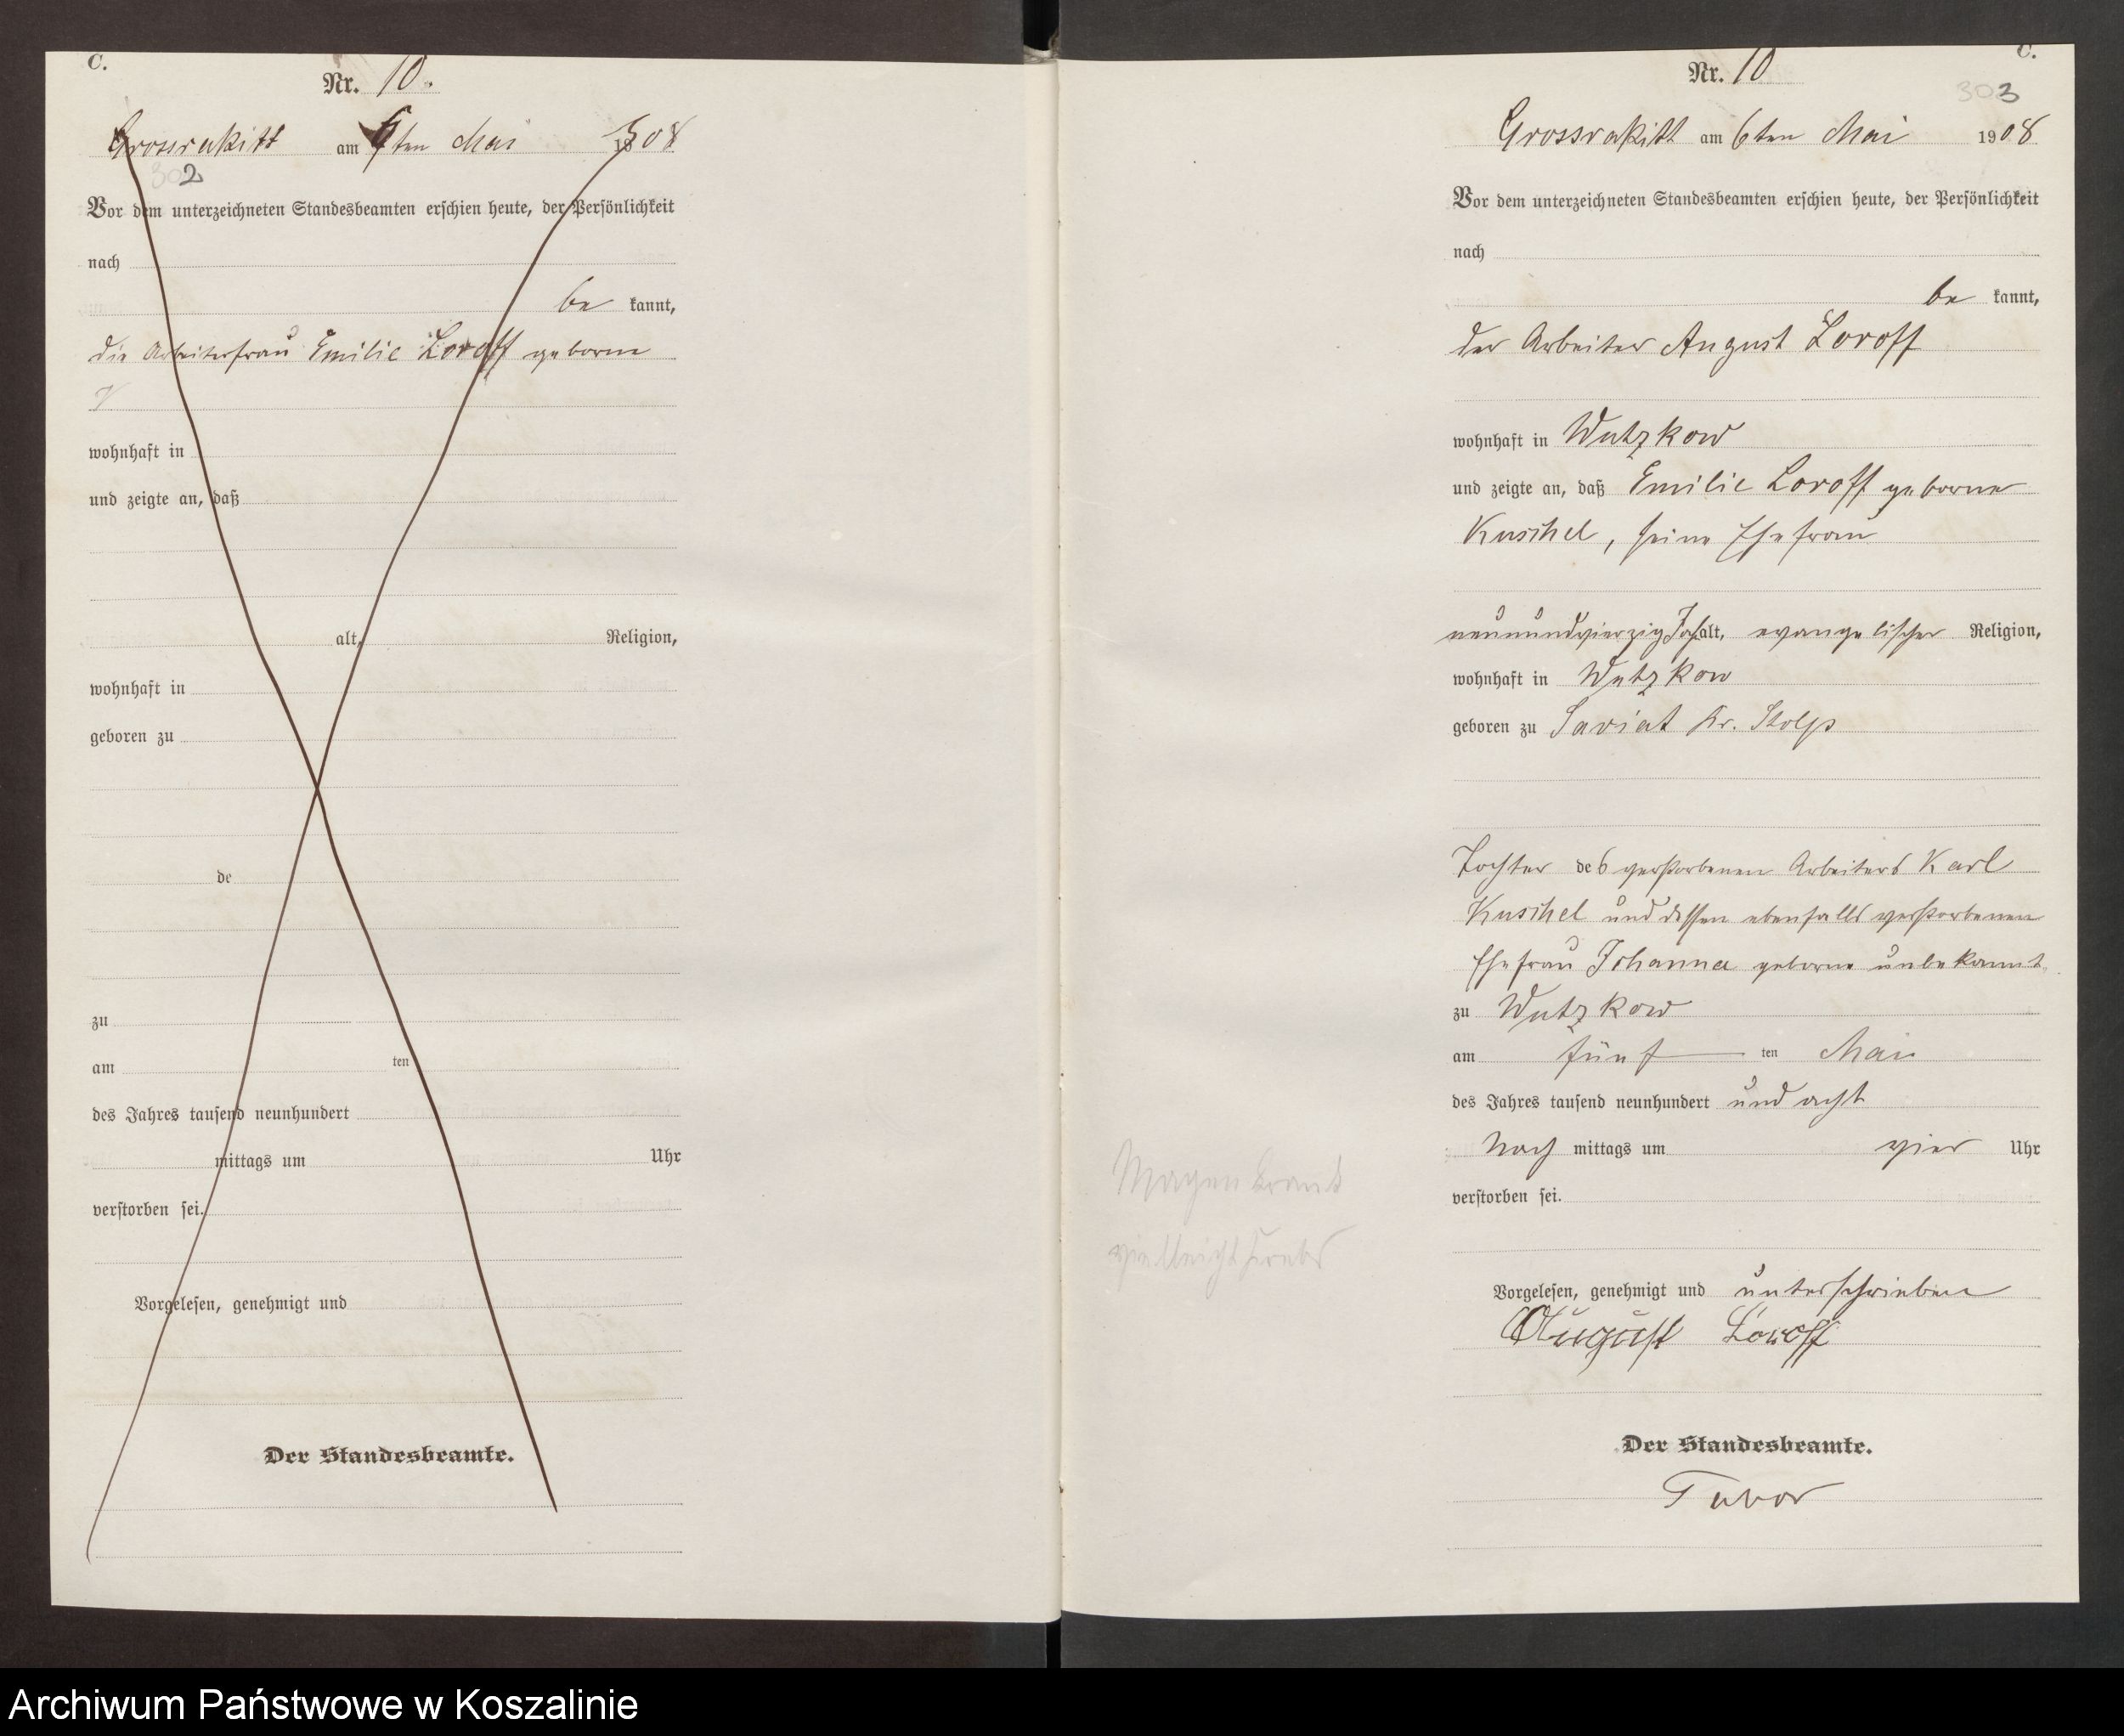 C.
Nr. 10.
Grossrakitt am 6ten Mai 1908
302
Vor dem unterzeichneten Standesbeamten erschien heute, der Persönlichkeit
nach
be kannt,
die Arbeiterfrau Emilie Loroff geborne
wohnhaft in
und zeigte an, daß
alt, Religion,
wohnhaft in
geboren zu
de
zu
am ten
des Jahres tausend neunhundert
mittags um Uhr
verstorben sei.
Vorgelesen, genehmigt und
Der Standesbeamte.
C.
Nr. 10
303
Grossrakitt am 6ten Mai 1908
Vor dem unterzeichneten Standesbeamten erschien heute, der Persönlichkeit
nach
be kannt,
der Arbeiter August Loroff
wohnhaft in Wutzkow
und zeigte an, daß Emilie Loroff geborne
Kuschel, seine Ehefrau
neunundvierzig Jah alt, evangelischer Religion,
wohnhaft in Wutzkow
geboren zu Saviat Kr. Stolp
Tochter des verstorbenen Arbeiters Karl
Kuschel und dessen ebenfalls verstorbenen
Ehefrau Johanna geborne unbekannt
zu Wutzkow
am fünf ten Mai
des Jahres tausend neunhundert und acht
Nach mittags um vier Uhr
verstorben sei.
Magen krank
vielleicht Krebs
Vorgelesen, genehmigt und unterschrieben
August Loroff
Der Standesbeamte.
Archiwum Państwowe w Koszalinie